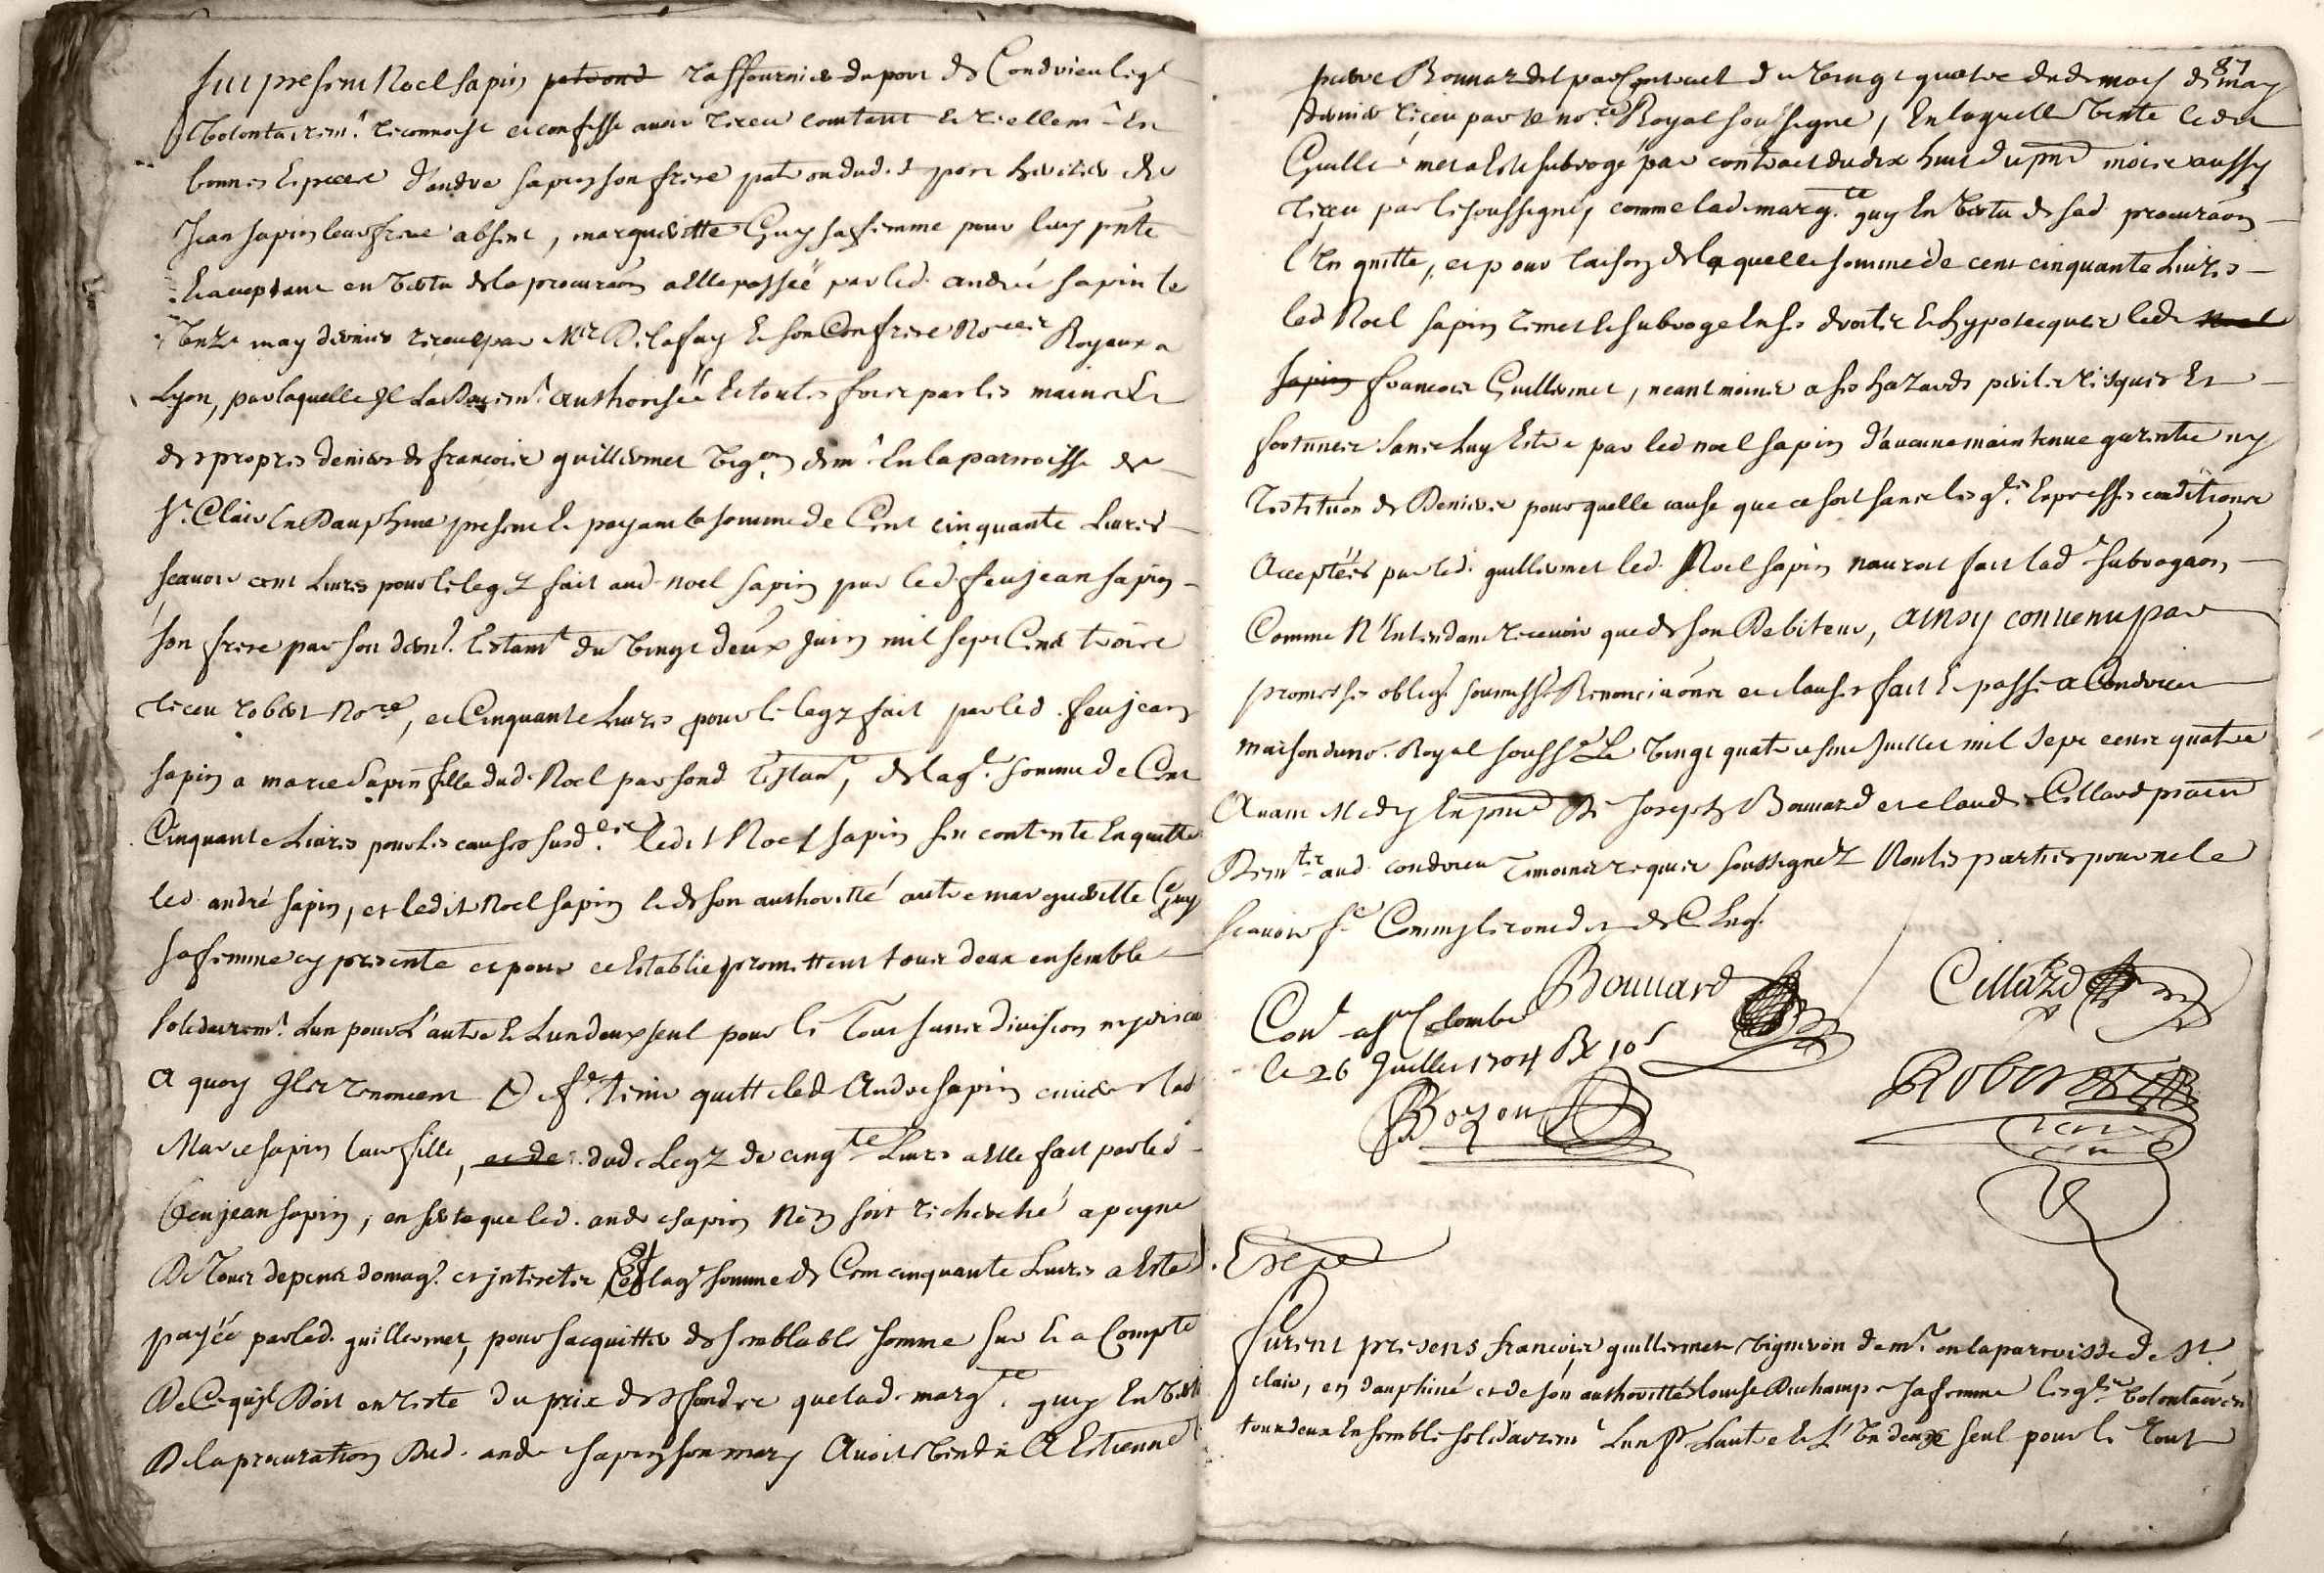 fut present Noel Sapin patrond raffournier du port de Condrieu leql
volontairemt. reconnoist et confesse avoir receu comtant et reellemt. en
bonnes especes d'andre sapin son frere patron dud. port heritier de
Jean sapin leur frere absent, margueritte Guy sa femme pour luy pnte
et acceptant en vertu de la procuraon a elle passée par led. andré sapin le
unze may dernier receue par Mr Delafay et son Confrere Nores Royaux a
Lyon, par laquelle Il La Duemt. authorisée et toutes fois par les mains et
des propres deniers de francois guillermet vigon demt. en la parroisse de
St. Clair en Dauphine present et payant la somme de Cent cinquante Livres
scavoir cent Livres pour le legz fait aud. noel sapin par led. feu jean sapin
son frere par son dernr. testamt du vingt deux juin mil sept Cent trois
receu robert Nore, et Cinquante Livres pour le legz fait par led. feu jean
sapin a marie Sapin fille dud. Noel par sond testamt, de laqle. somme de Cent
Cinquante Livres pour les causes susd.es ledit Noel sapin sen contente en quitte
led. andré sapin, et ledit Noel sapin et de son authoritté autre margueritte Guy
sa femme cy presente et pour ce establie promettent tous deux ensemble
solidairemt. Lun pour L'autre et Lun deux seul pour le Tout sans division
a quoy Ils renoncent De fe tenir quitte led Andre sapin envers lad
Marie sapin leur fille, et de dud. Legz de cinqte Livres a elle fait par led
feu jean sapin, en sorte que led. andre sapin nen soit recherché a peyne
De Tous depens domag. et interets Et laqe somme de Cent cinquante Livres a esté
payée par led. guillermet, pour sacquitter de semblable somme sur et a Compte
De Ce quil Doit en reste du prix des fondz que lad. margte. guy En vertu
De la procuration Dud. andre sapin son mary Avoit vendu A Estienne
87
pierre Bonnardel par Contract du vingt quatre dud mois de may
dernier receu par le nore Royal soussigné, En laquelle vente led
Guillermet a esté subrogé par contract du dix huit du pnt mois aussy
receu par le soussigné, comme lad. margte guy En vertu de sad procuraon
l'en quitte, et pour raison de laquelle somme de cent cinquante Livres
led Noel sapin remet et subroge en ses droits et hypotecques led. Noel
Sapin francois Guillermet, neantmoins a ses hazards perils risques et
fortunes sans luy Estre par led noel sapin d'aucune maintenue garentie ny
restitúon de Deniers pour quelle cause que ce soit sans lesqles. expresses conditions
Acceptées par led. guillermet led. Noel sapin nauroit fait lad. subrogaon
Comme N'Entendant recevoir que de son Debiteur, Ainsy convenu par
promesses obligs. soumisss. Renonciaons et clauses fait et passé a Condrieu
maison dunor. Royal soussé Le vingt quatriesme Juillet mil sept cents quatre
Avant Midy En pnce De Joseph Bouuard et claude Cillard praticien
Demts. aud. condrieu Temoins requis soussignez Non les parties pour ne le
scavoir
Con. a Ste Colombe
le 26 Juillet 1704 Rx 10s
Bozon
Bouuard
Cillard
Robert
Nore
Exepe
furent presens francois guillermet vigneron demt. en la parroisse de St.
clair, en dauphiné et de son authoritté Louise Duchamp sa femme lesqls. volontairent
tous deux ensemble solidairemt Lun pr Lautre et L'Un deux seul pour le Tout